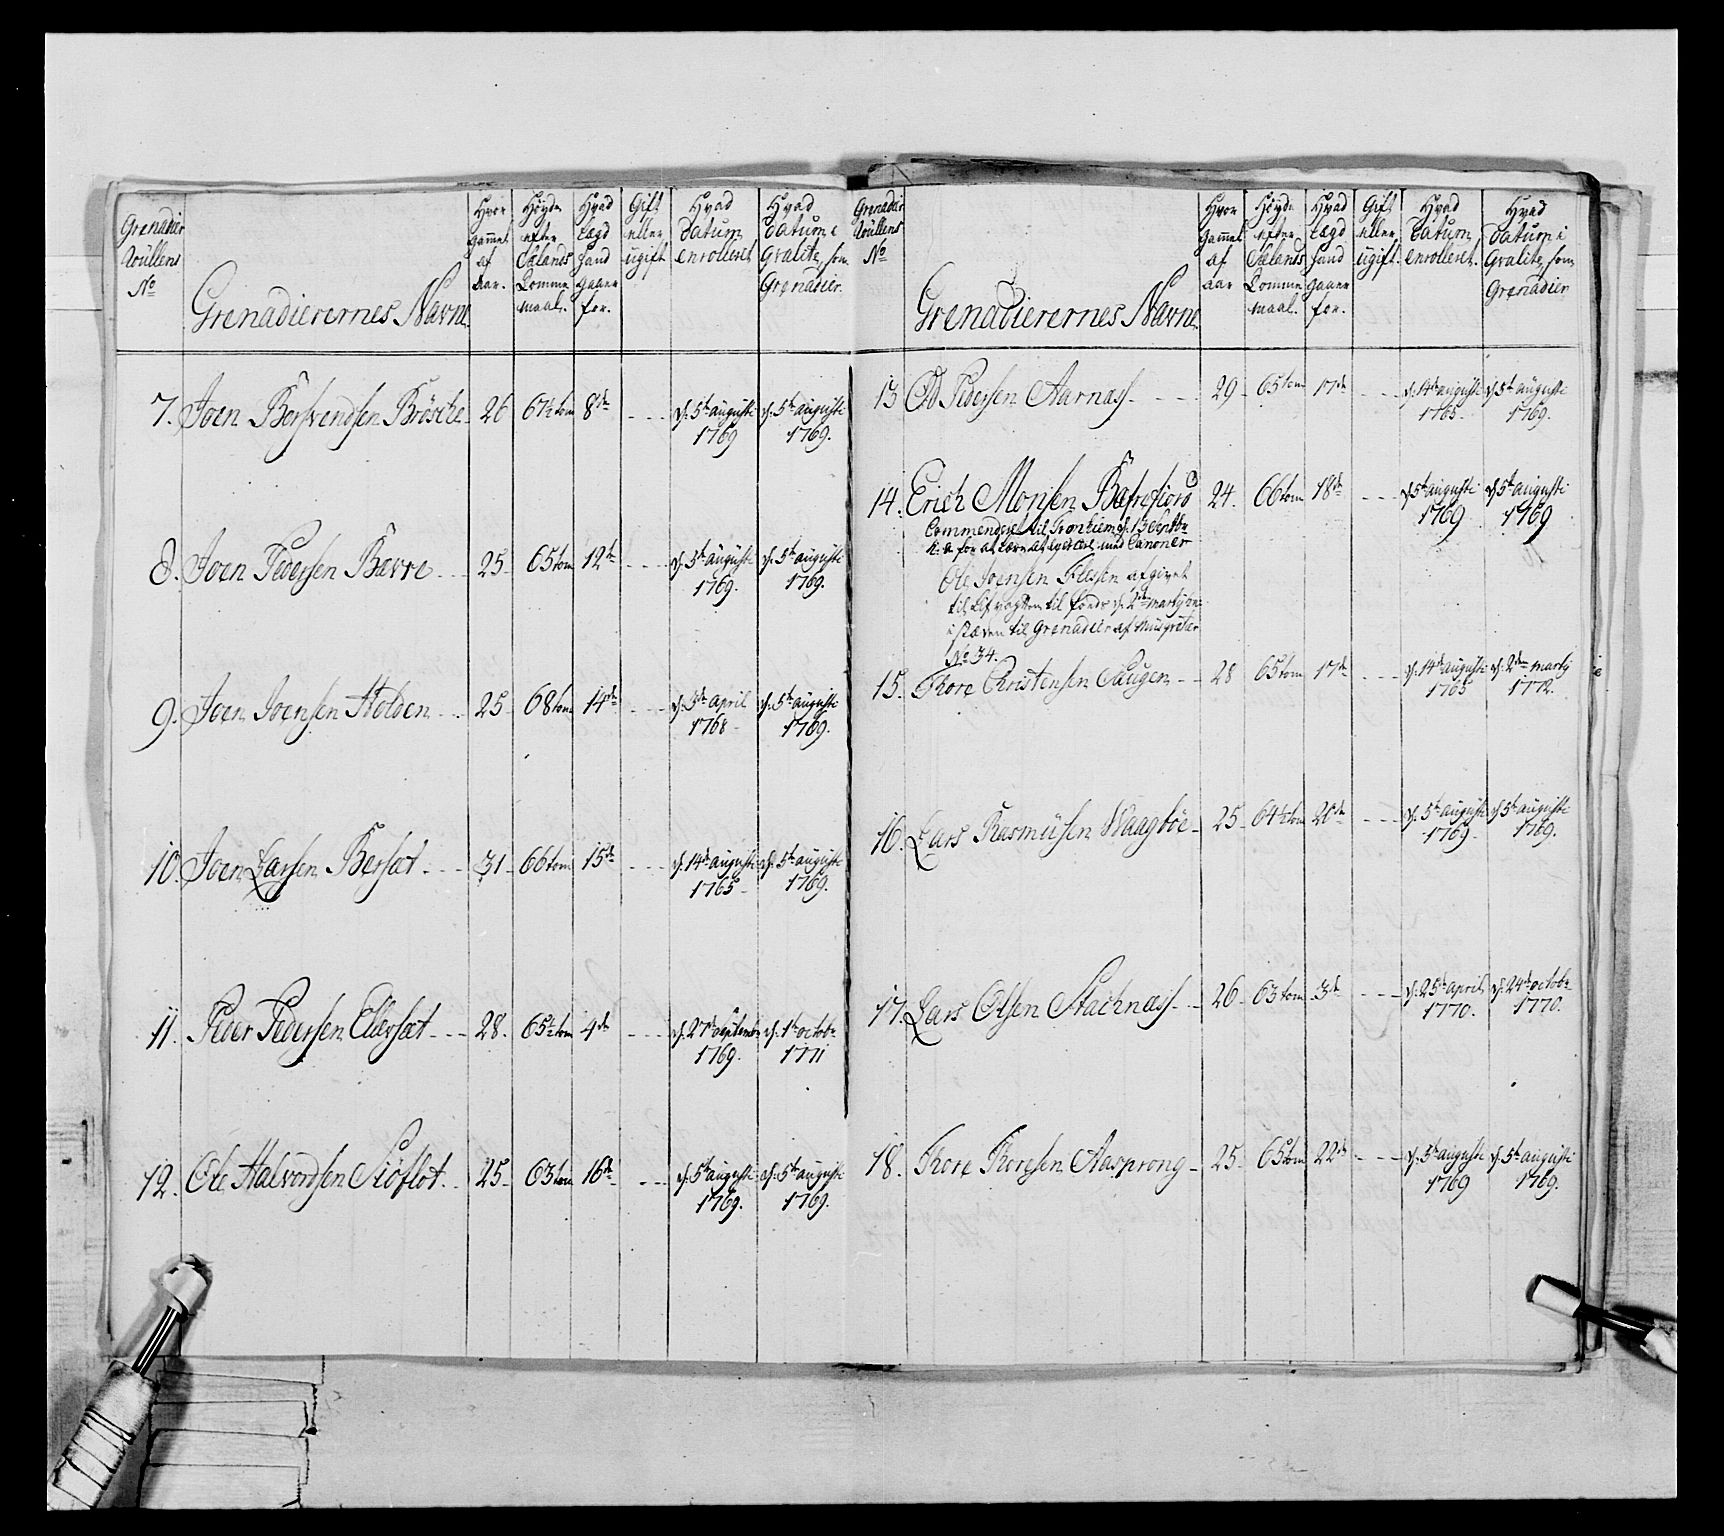 Grenadier Rüllens No
Grenadierernes Navne
Hvor gammel af Aar.
Høyde efter Sælands Tomme maal.
Hvad Lægd hand gaaer for.
Gift eller ugift
Hvad Datum enrolleret
Hvad Datum i Qvalite som Grenadier.
7. Joen Bersvendsen Brøske 26 67½ tom 8de - - - d: 5te augusti 1769 d: 5te augusti 1769.
8. Joen Pedersen Bævre 25 65 tom 12te - - - d: 5te augusti 1769. d: 5te augusti 1769.
9. Joen Joensen Holden 25 68 tom 14de - - - d: 3de april 1768 d: 5te augusti 1769.
10. Joen Larsen Bersæt 31 66 tom 15de - - - d: 14de augusti 1765 d: 5te augusti 1769.
11. Peder Pedersen Ellersæt 28. 65½ tom 4de - - - d: 27de septembr 1769. d: 1te octobr 1771
12. Ole Halvordsen Siøflot 25 63 tom 16de - - - d: 5te augusti 1769. d: 5te augusti 1769.
Grenadier Rüllens No
Grenadierernes Navne
Hvor gammel af Aar
Høyde efter Sælands Tomme maal.
Hvad Lægd hand gaaer for.
Gift eller ugift.
Hvad Datum enrolleret.
Hvad Datum i Qvalite som Grenadier
13 Od Pedersen Aarnæs 29 65 tom 17de - - - d: 14de augusti 1765. d: 5te augusti 1769.
14. Erich Monsen Bæfrefiord 24. 66 tom 18de - - - d: 5te augusti 1769 d: 5te augusti 1769
Commenderet til Tronhiem d: 13 Septbr
h: a: for at lære at med Canoner
Ole Joensen Flessen afgivet
til Lifvagten til fods d: 2den marty
i stæden til Grenadier af Musqveter
No 34.
15. Tore Christensen Haugen 28 65 tom 17de - - - d: 14de augusti 1765 d: 2den marty 1772.
16. Lars Rasmüsen Waagbøe 25 64½ tom 20de - - - d: 5te augusti 1769 d: 5te augusti 1769.
17. Lars Olsen Stachnæs 26 63 tom 3de - - - d: 25de april 1770. d: 24de octobr 1770.
18. Tore Toresen Aasprong 25 65 tom 22de - - - d: 5te augusti 1769 d: 5te augusti 1769.